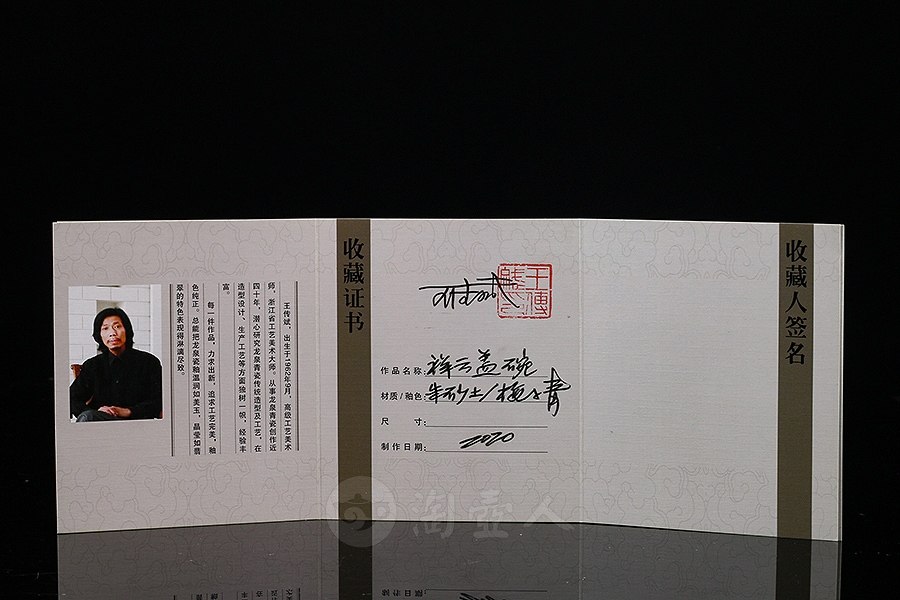 王传斌，出生于1962年9月，高级工艺美术
师，浙江省工艺美术大师。从事龙泉青瓷创作近
四十年，潜心研究龙泉青瓷传统造型及工艺，在
造型设计、生产工艺等方面独树一帜，经验丰
富。
每一件作品，力求出新，追求工艺完美，釉
色纯正。总能把龙泉瓷釉温润如美玉，晶莹如翡
翠的特色表现得淋漓尽致。
收藏证书
王传斌
作品名称：祥云盖碗
材质/釉色：朱砂土/梅子青
尺 寸：
制作日期：2020
收藏人签名
淘壶人